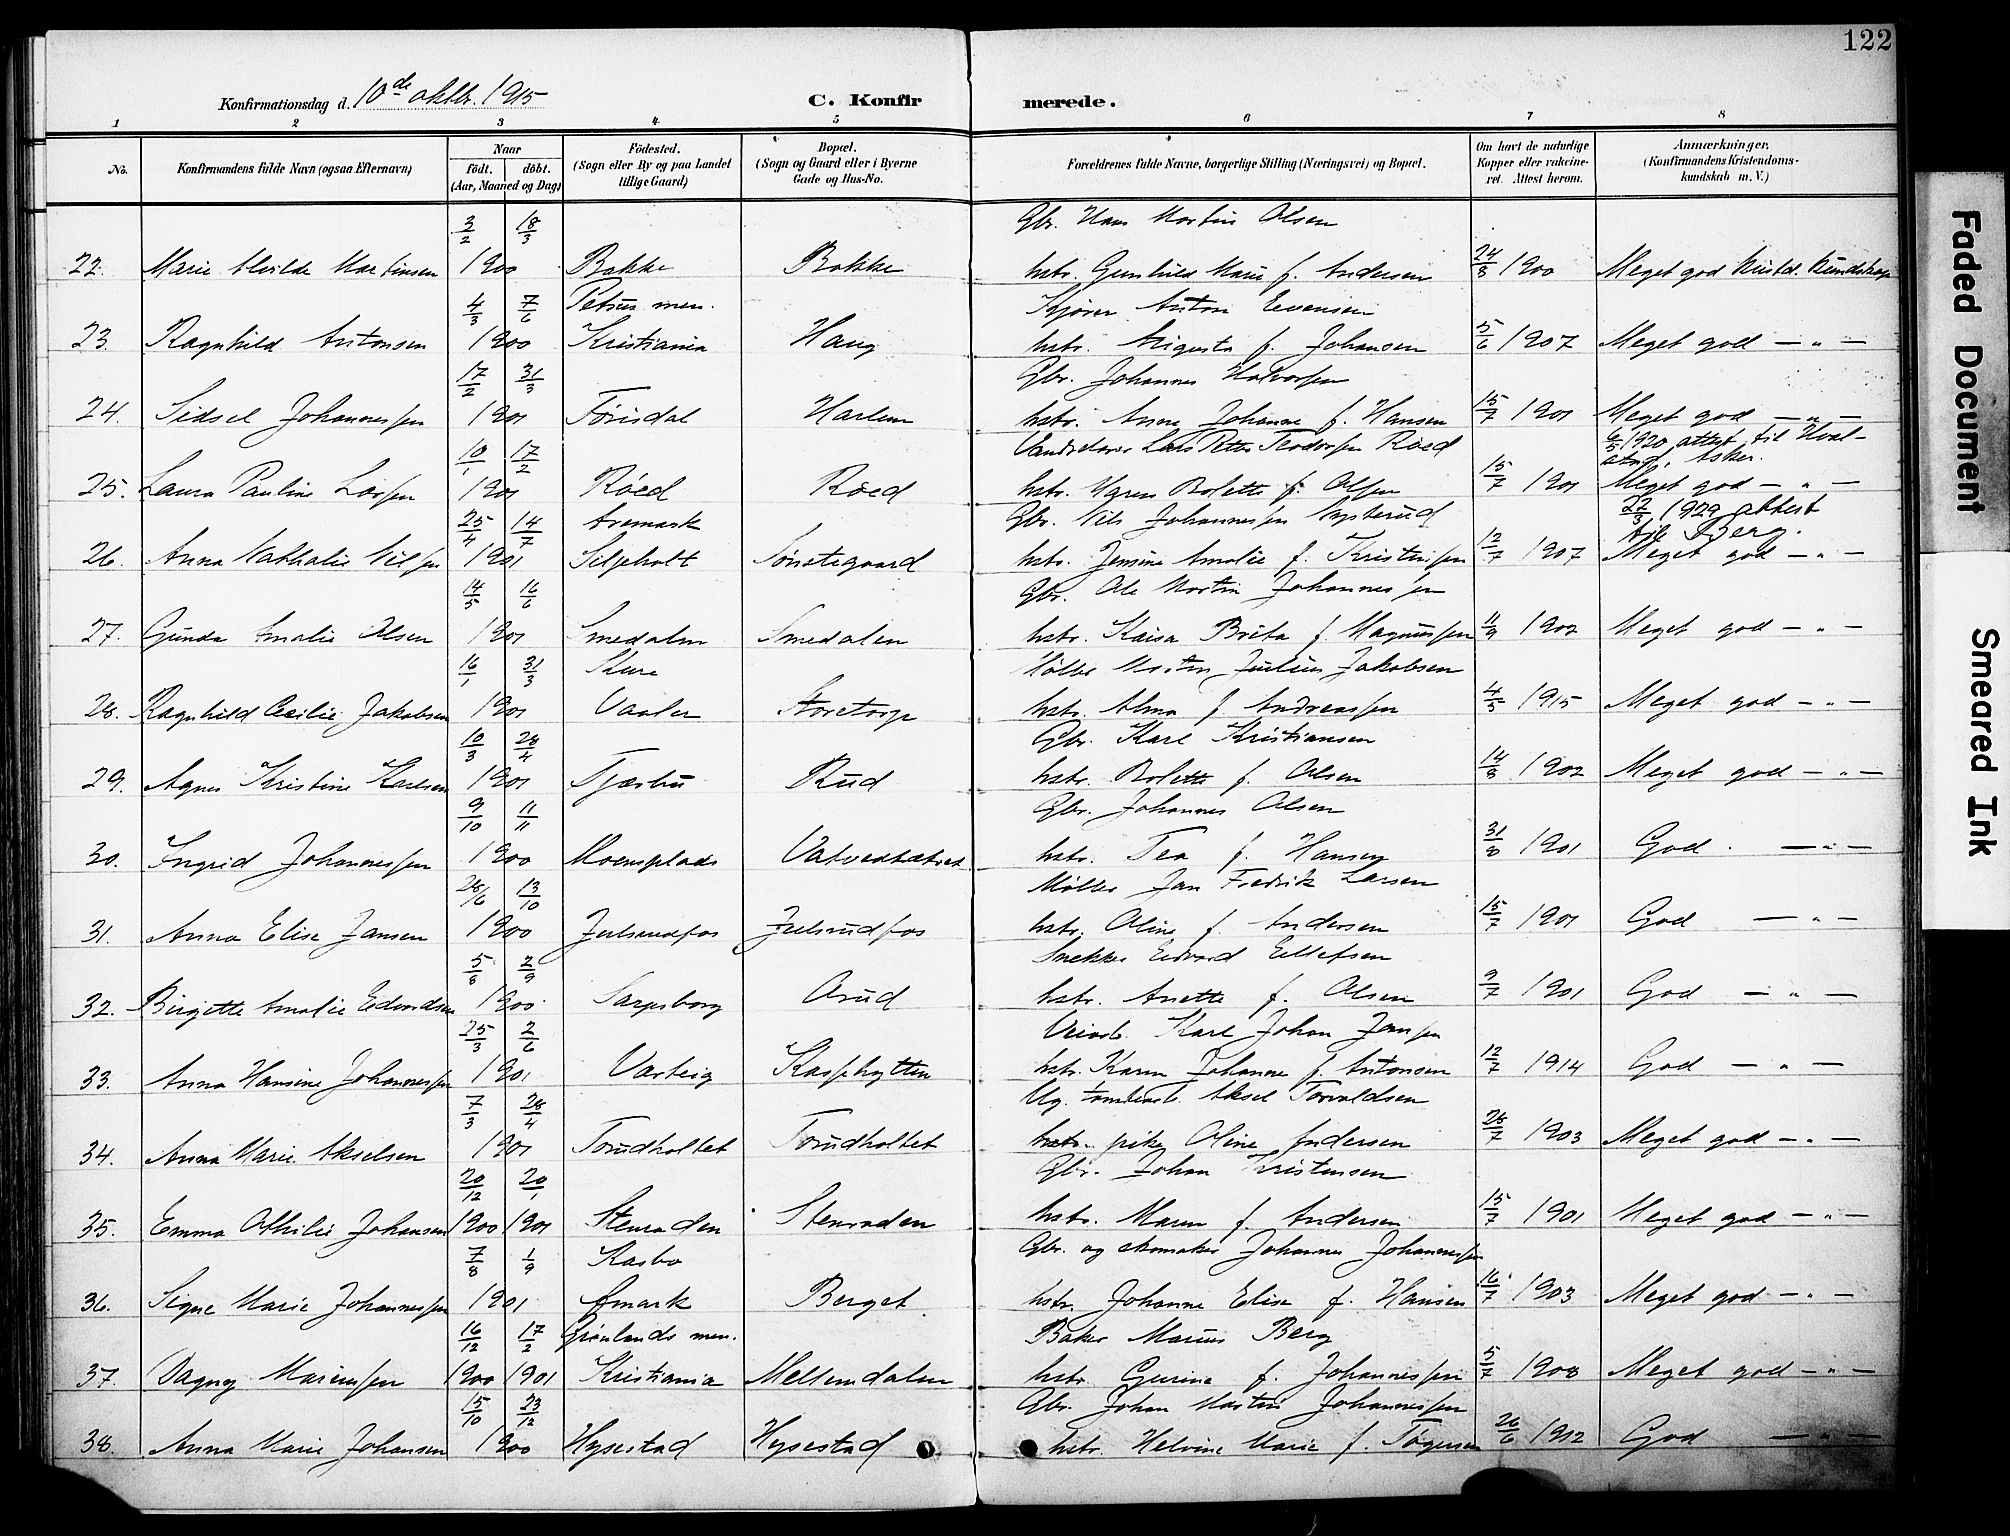 122
Konfirmationsdag d. 10de oktbr. 1915
C. Konfirmerede.
1 2 3 4 5 6 7 8
No.
Konfirmandens fulde Navn (ogsaa Efternavn)
Naar
födt. döbt.
(Aar, Maaned og Dag)
Födested.
(Sogn eller By og paa Landet
tillige Gaard)
Bopæl.
(Sogn og Gaard eller i Byerne
Gade og Hus-No.
Forældrenes fulde Navne, borgerlige Stilling (Næringsvei) og Bopæl.
Om havt de naturlige
Kopper eller vakcine-
ret. Attest herom.
Anmærkninger.
(Konfirmandens Kristendoms-
kundskab m. V.)
3/2 18/3 Gbr. Hans Martin Olsen
22. Marie Alvilde Martinsen 1900 Bakke Bakke hstr. Gunhild Marie f. Andersen 24/8 1900 Meget god kristd. kundskap
4/3 7/6 Petrus men. Kjører Anton Evensen
23. Ragnhild Antonsen 1900 Kristiania Haug hstr. Augusta f. Johansen 5/6 1907 Meget god — " —
17/2 31/3 Gbr. Johannes Halvorsen
24. Sidsel Johannessen 1901 Torisdal Harlem hstr. Anna Johanne f. Hansen 15/7 1901 Meget god — " —
10/1 17/2 Lars Petter Teodorsen Röed 6/5 1920 attest til Hval-
stad, Asker.
25. Laura Pauline Larsen 1901 Röed Röed hstr. Maren Bolette f. Olsen 15/7 1901 Meget god — " —
25/4 14/7 Aremark Gbr. Nils Johannessen Nysterud 22/3 1929 attest
til Berg.
26. Anna Nathalie Nilsen 1901 Siljeholt Sönstegaard hstr. Jensine Amalie f. Kristensen 12/7 1907 Meget god — " —
14/5 16/6 Gbr. Ole Martin Johannessen
27. Gunda Amalie Olsen 1901 Smedalen Smedalen hstr. Kaisa Brita f. Magnussen 11/9 1902 Meget god — " —
16/1 31/3 Kure Möller Martin Julius Jakobsen
28. Ragnhild Cecilie Jakobsen 1901 Vaaler Storetorp hstr. Alma f. Andreassen 4/5 1915 Meget god — " —
10/3 28/4 Gbr. Karl Kristiansen
29. Agnes Kristine Karlsen 1901 Tjærbu Rud hstr. Bolette f. Olsen 14/8 1902 Meget god — " —
9/10 11/11 Gbr. Johannes Olsen
30. Ingrid Johannessen 1900 Moensplads hstr. Tea f. Hansen 31/8 1901 God — " —
28/6 13/10 Möller Jan Fredrik Larsen
31. Anna Elise Jansen 1900 Julsrudfos Julsrudfos hstr. Oline f. Andersen 15/7 1901 God — " —
5/8 2/9 Snekker Edvard Ellefsen
32. Birgitte Amalie Edvardsen 1900 Sarpsborg Orud hstr. Anette f. Olsen 9/7 1901 God — " —
25/3 2/6 Karl Johan Jansen
33. Anna Hansine Johannessen 1901 Varteig Kasphytten hstr. Karen Johanne f. Antonsen 12/7 1914 God — " —
7/3 28/4 Ug. Aksel Torvaldsen
34. Anna Marie Akselsen 1901 Torudholtet Torudholtet pike Oline Andersen 28/7 1903 Meget god — " —
20/12 20/1 Gbr. Johan Kristensen
35. Emma Othilie Johansen 1900 1901 Stenraden Stenraden hstr. Maren f. Andersen 15/7 1901 Meget god — " —
7/8 1/9 Kasbo Gbr. og skomaker Johannes Johannessen
36. Signe Marie Johannessen 1901 Amark Berget hstr. Johanne Elise f. Hansen 16/7 1903 Meget god — " —
16/12 17/2 Grönlands men. Baker Marius Berg
37. Dagny Mariussen 1900 1901 Kristiania Mellemdalen hstr. Gurine f. Johannessen 5/7 1908 Meget god — " —
15/10 23/12 Gbr. Johan Martin Johannessen
38. Anna Marie Johansen 1900 Hysestad Hysestad hstr. Helvine Marie f. Tögersen 26/6 1912 God — " —
Faded Document
Smeared Ink